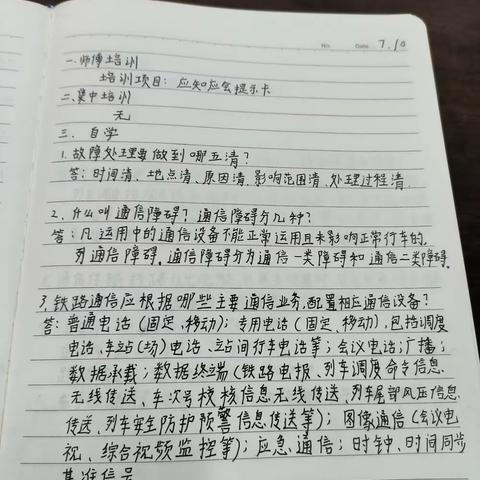 No.
Date 7.10
一.师傅培训
培训项目：应知应会提示卡
二.集中培训
无
三.自学
1.故障处理要做到哪五清？
答：时间清、地点清、原因清、影响范围清、处理过程清.
2.什么叫通信障碍？通信障碍分几种？
答：凡运用中的通信设备不能正常运用且未影响正常行车的,
列通信障碍.通信障碍分为通信一类障碍和通信二类障碍.
3.铁路通信应根据哪些主要通信业务,配置相应通信设备？
答：普通电话（固定、移动）；专用电话（固定、移动）,包括调度
电话、车站（场）电话、站间行车电话等；会议电话；广播；
数据承载；数据终端（铁路电报、列车调度命令信息
无线传送、车次号校核信息无线传送、列车尾部风压信息
传送、列车安全防护预警信息传送等）；图像通信（会议电
视、综合视频监控等）；应急通信；时钟、时间同步
基准信号